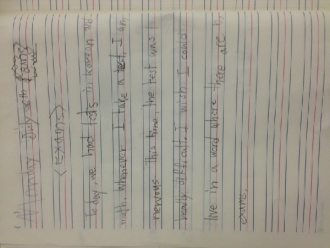 Friday July 10th
<exams>
Today, we had tests in korean and
math. Whenever I take a test, I am
nervous. This time the test was
really difficult. I wish I could
live in a word where there are no
exams.